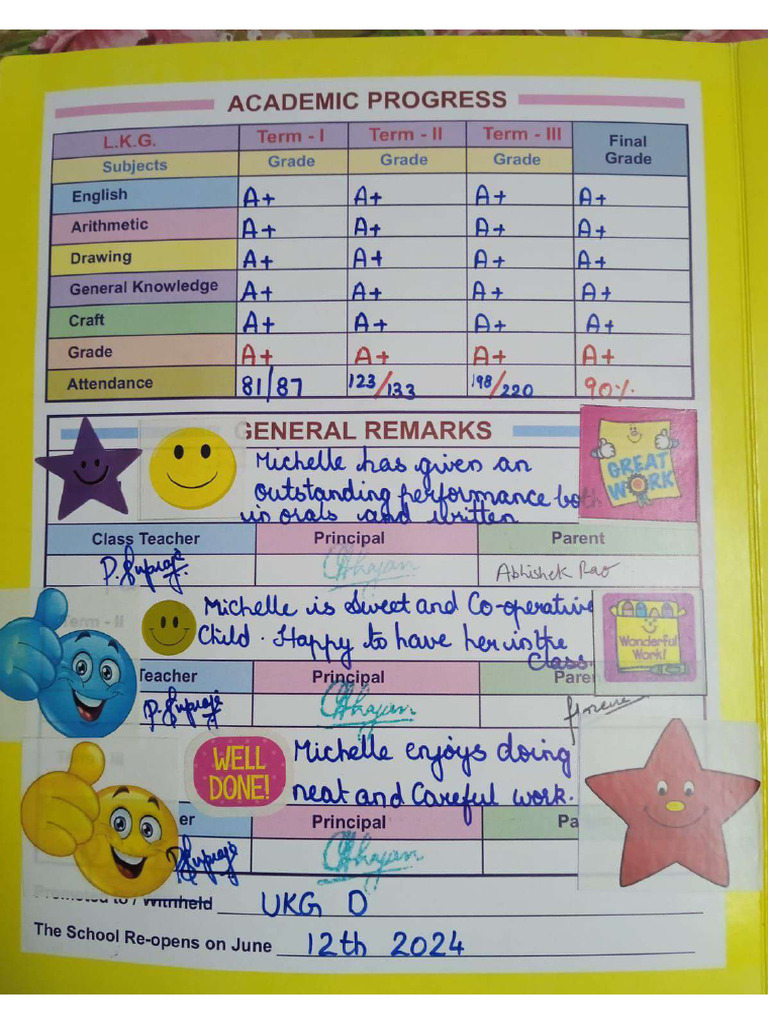 ACADEMIC PROGRESS
L.K.G. Term - I Term - II Term - III Final Grade
Subjects Grade Grade Grade
English A+ A+ A+ A+
Arithmetic A+ A+ A+ A+
Drawing A+ A+ A+ A+
General Knowledge A+ A+ A+ A+
Craft A+ A+ A+ A+
Grade A+ A+ A+ A+
Attendance 81/87 123/133 198/220 90%
GENERAL REMARKS
Michelle has given an
outstanding performance both
in orals and written
GREAT WORK
Class Teacher Principal Parent
Abhishek Rao
Term - II
Michelle is Sweet and Co-operative
Child. Happy to have her in the
Class.
Wonderful Work!
Teacher Principal Paren
Term - III
WELL DONE!
Michelle enjoys doing
neat and Careful work.
er Principal Pa
Promoted to / Withheld UKG D
The School Re-opens on June 12th 2024